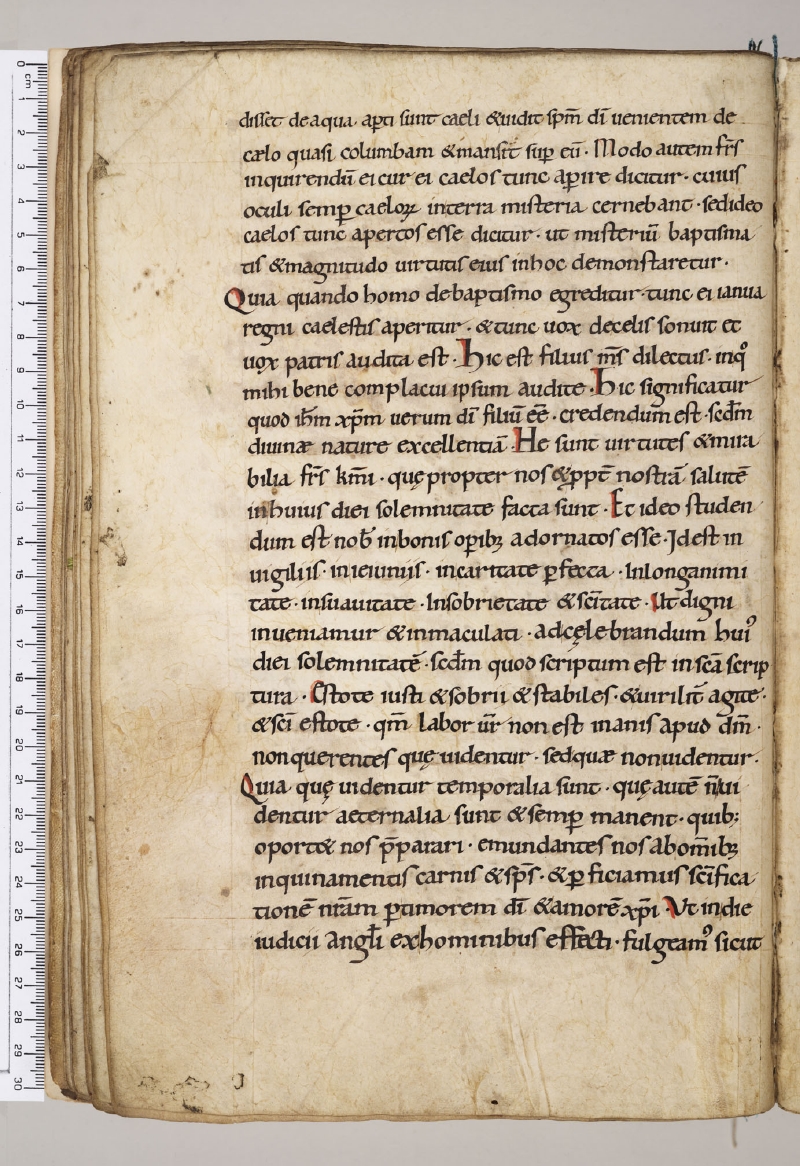 disset de aqua. aꝑti sunt caeli &uidit sp̄m dī uenientem de
caelo quasi columbam &mansit suꝑ eū. Modo autem fr̄s
inquirendū ei cur ei caelos tunc aꝑire dicitur. cuius
oculi semꝑ caeloꝝ interra misteria cernebant. sedideo
caelos tunc apertos esse dicitur. ut misteriū baptisma
tis &magnitudo uirtutis eius inhoc demonstraretur.
Quia quando homo debaptismo egreditur. tunc ei ianua
regni caelestis aperitur. &tunc uox decelis sonuit et
uox patris audita est. Hic est filius m̄s dilectus. inqꝰ
mihi bene complacui ipsum audite. hic significatur
quod ih̄m xp̄m uerum dī filiū eē. credendum est. scd̄m
diuinæ nature excellentiā. He sunt uirtutes &mira
bilia fr̄s km̄i. quę propter nos &ꝓpt̄ nostrā salutē
inhuius diei solemnitate facta sunt. Et ideo studen
dum est nob̄ inbonis oꝑibꝫ adornatos esse. Idest in
uigiliis. inieiuniis. incaritate ꝑfecta. Inlonganimi
tate. insuauitate. Insobrietate &sc̄itate. Ut digni
inueniamur &inmaculati. adcęlebrandum huiꝰ
diei solemnitatē. scd̄m quod scriptum est insc̄a scrip
tura. Estote iusti &sobrii &stabiles. &uirilit̄ agite.
&sc̄i estote. qm̄ labor ur̄ non est inanis apud dm̄.
nonquerentes quę uidentur. sedquæ nonuidentur.
Quia quę uidentur temporalia sunt. quę autē n̄ ui
dentur aeternalia sunt &semꝑ manent. quibꝫ
oport& nos p̄parari. emundantes nos abom̄ibꝫ
inquinamentis carnis &sp̄s. &ꝑficiamus sc̄ifica
tionē nr̄am ꝑtimorem dī &amorē xp̄i. Ut indie
iudicii angl̄i exhominibus effecti. fulgeamꝰ sicut